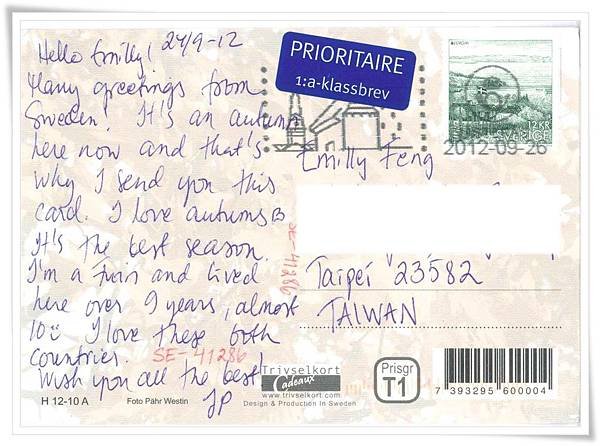 Hello Emilly! 24/9-12
Many greetings from
Sweden! It's an autumn
here now and that's
why I send you this
card. I love autumns
It's the best season.
I'm a Finn and lived
here over 9 years, almost
10 I love these both
countries. SE-41286
Wish you all the best!
JP
H 12-10 A
Foto Pähr Westin
PRIORITAIRE
1:a-klassbrev
EUROPA
12 KR
SVERIGE
2012-09-26
Emilly Feng
SE-41286
Taipei 23582
TAIWAN
Trivselkort
Cadeaux
www.trivselkort.com
Design & Production in Sweden
Prisgr
T1
7 393295 600004